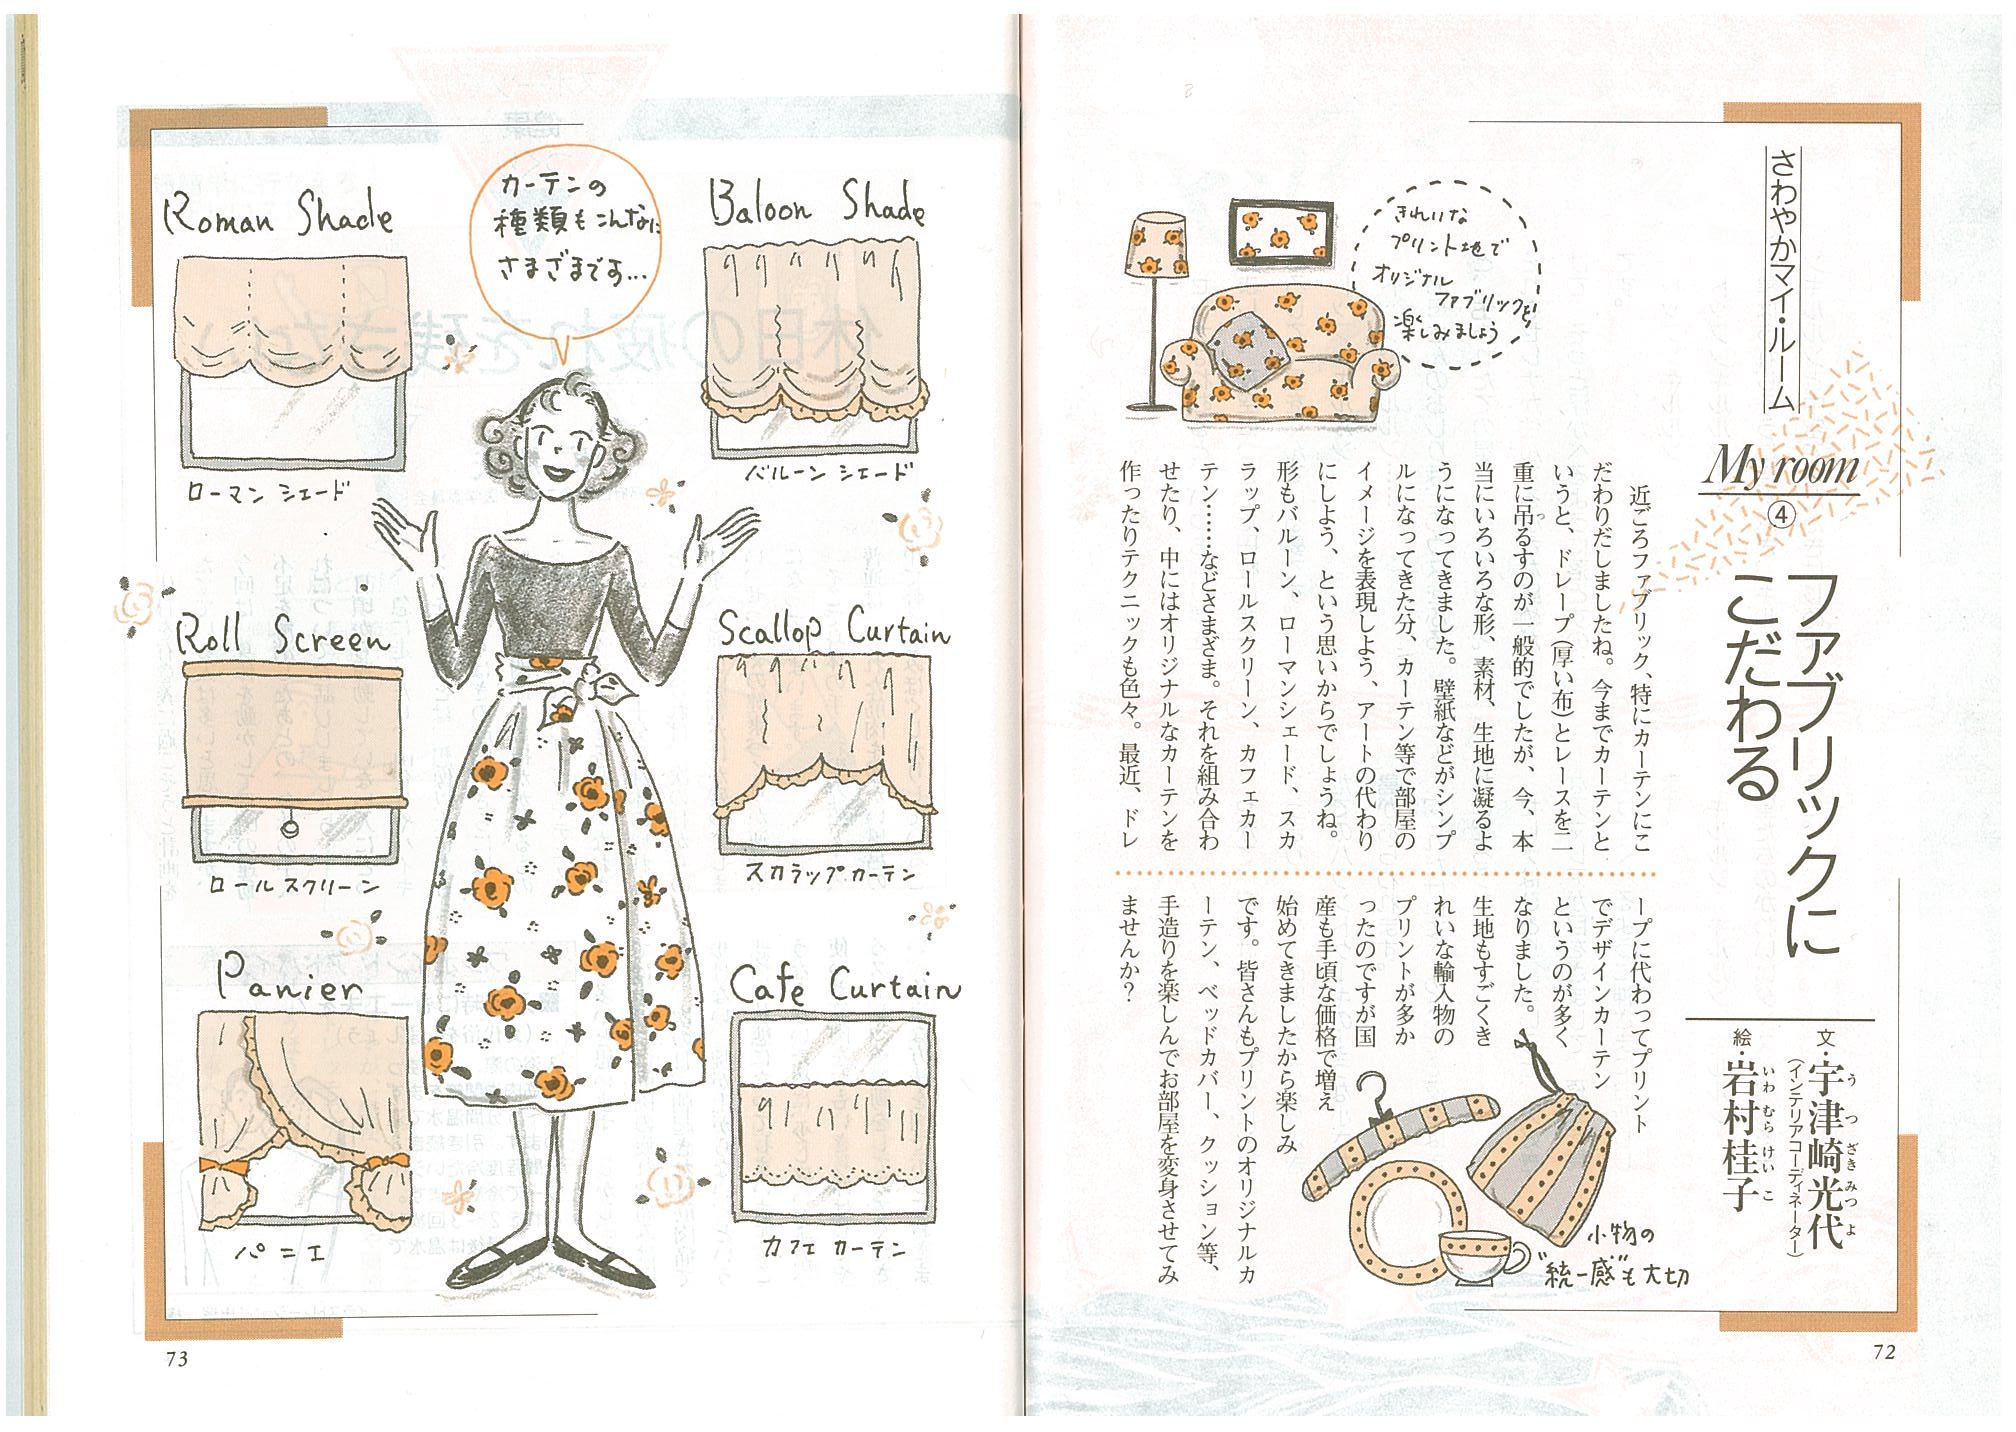 さわやかマイ・ルーム
My room
④
ファブリックに
こだわる
文・宇津崎光代
うつざきみつよ
(インテリアコーディネーター)
絵・岩村桂子
いわむらけいこ
きれいな
プリント地で
オリジナル
ファブリックを
楽しみましょう
近ごろファブリック、特にカーテンにこ
だわりだしましたね。今までカーテンと
いうと、ドレープ(厚い布)とレースを二
重に吊るすのが一般的でしたが、今、本
つ
当にいろいろな形、素材、生地に凝るよ
うになってきました。壁紙などがシンプ
ルになってきた分、カーテン等で部屋の
イメージを表現しよう、アートの代わり
にしよう、という思いからでしょうね。
形もバルーン、ローマンシェード、スカ
ラップ、ロールスクリーン、カフェカー
テン……などさまざま。それを組み合わ
せたり、中にはオリジナルなカーテンを
作ったりテクニックも色々。最近、ドレ
ープに代わってプリント
でデザインカーテン
というのが多く
なりました。
生地もすごくき
れいな輸入物の
プリントが多か
ったのですが国
産も手頃な価格で増え
始めてきましたから楽しみ
です。皆さんもプリントのオリジナルカ
ーテン、ベッドカバー、クッション等、
手造りを楽しんでお部屋を変身させてみ
ませんか?
小物の
"統一感"も大切
72
カーテンの
種類もこんなに
さまざまです…
Baloon Shade
バルーン シェード
Roman Shade
ローマン シェード
Scallop Curtain
スカラップカーテン
Roll Screen
ロールスクリーン
Cafe Curtain
カフェ カーテン
Panier
パニエ
73